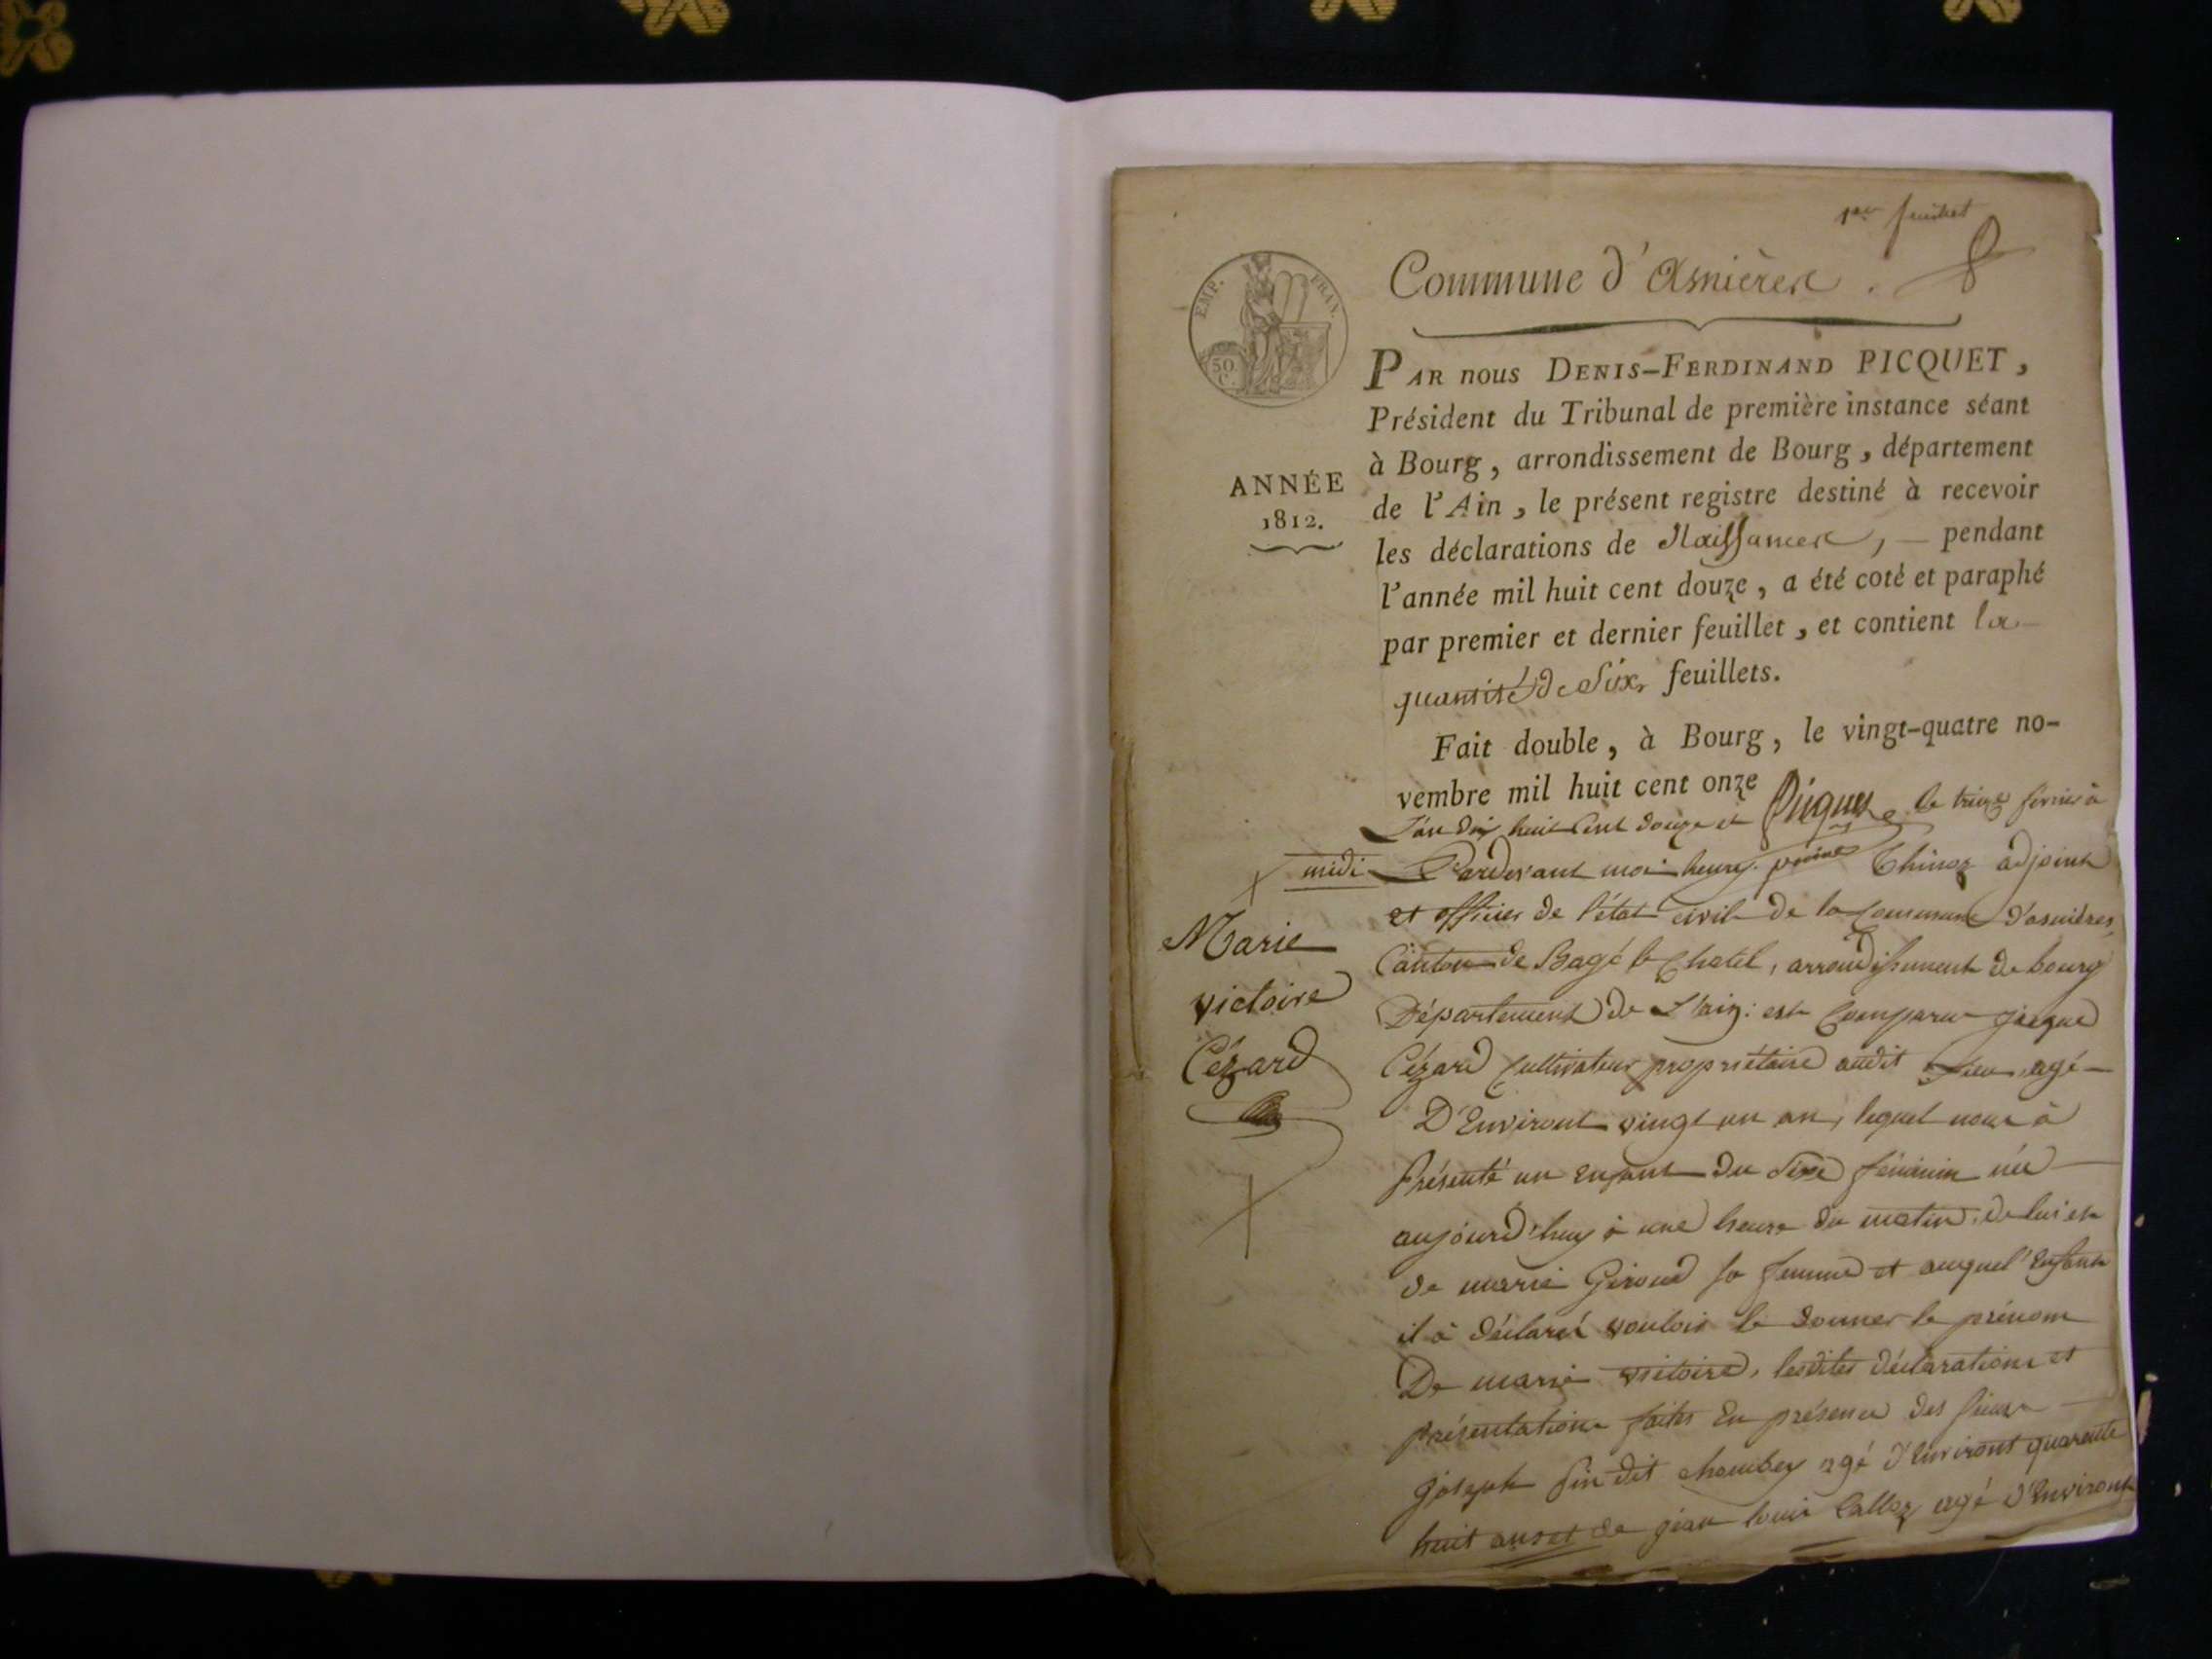 1er feuillet
Commune d'Asnières.
EMP. FRAN.
50
C.
PAR nous DENIS-FERDINAND PICQUET,
Président du Tribunal de première instance séant
à Bourg, arrondissement de Bourg, département
de l'Ain, le présent registre destiné à recevoir
les déclarations de Naissances, — pendant
l'année mil huit cent douze, a été coté et paraphé
par premier et dernier feuillet, et contient la
quantité de Six feuillets.
ANNÉE
1812.
Fait double, à Bourg, le vingt-quatre no-
vembre mil huit cent onze Picquet
L'an dix huit cent douze et le treize à
midi Pardevant moi adjoint
et officier de l'état civil de la Commune d'asnières,
Canton de Bagé le Chatel, arrondissement de bourg
Département de L'ain: est Comparu jacque
Cézard Cultivateur propriétaire audit lieu, agé
D'Environt vingt un an, lequel nous à
Présenté un Enfant du Sexe féminin née
aujourd'huy à une heure du matin, de lui et
de marie Giroud sa femme et auquel Enfant
il à déclaré vouloir le donner le prénom
De marie victoire, lesdites déclarations et
présentations faites En présence des sieurs
joseph dit agé d'Environt quarante
huit ans et de jean louis agé d'Environt
Marie
victoire
Cézard